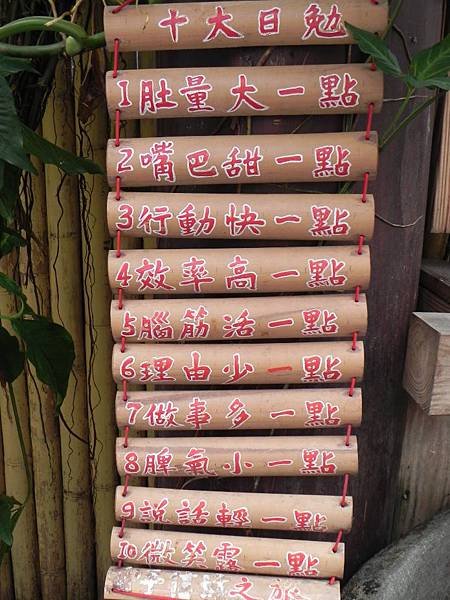 十大日勉
1肚量大一點
2嘴巴甜一點
3行動快一點
4效率高一點
5腦筋活一點
6理由少一點
7做事多一點
8脾氣小一點
9說話輕一點
10微笑露一點
之旅